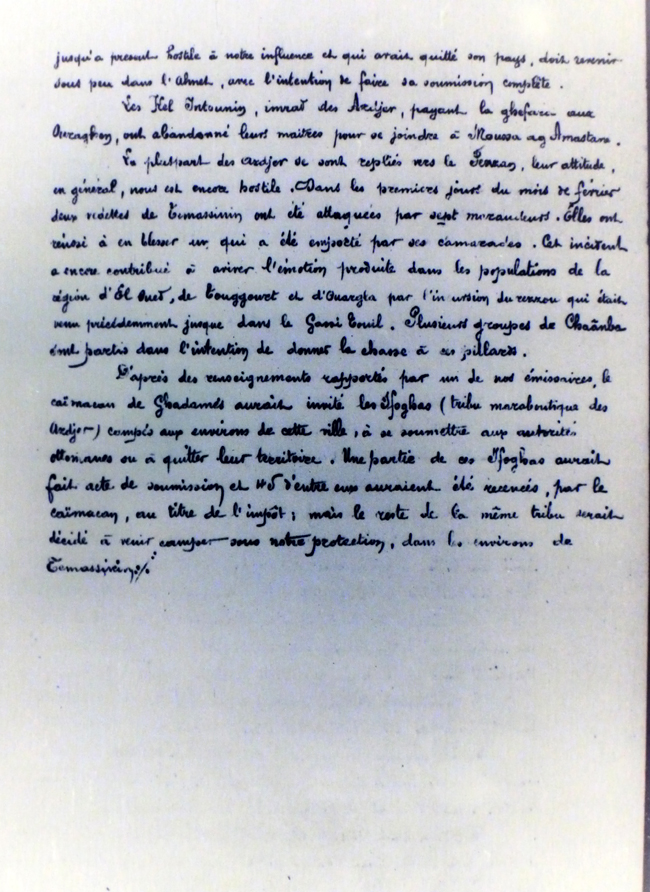 jusqu'a present hostile à notre influence et qui avait quitté son pays, doit revenir
sous peu dans l'Ahnet, avec l'intention de faire sa soumission complète.
Les Kel Intsunin, imrad des Azdjer, payant la ghefara aux
Ouraghen, ont abandonné leurs maitres pour se joindre à Moussa ag Amastane.
La pluspart des azdjer se sont repliés vers le Fezzan, leur attitude,
en général, nous est encore hostile. Dans les premiers jours du mois de février
deux vedettes de Temassinin ont été attaquées par sept maraudeurs. Elles ont
réussi à en blesser un qui a été emporté par ses camarades. Cet incident
a encore contribué à aviver l'émotion produite dans les populations de la
région d'El Oued, de Touggourt et d'Ouargla par l'in ursion du rezzou qui était
venu précédemment jusque dans le Gassi Touil. Plusieurs groupes de Chaânba
sont partis dans l'intention de donner la chasse à ces pillards.
D'après des renseignements rapportés par un de nos émissaires, le
caïmacan de Ghadamès aurait invité les Ifoghas (tribu maraboutique des
Azdjer) campés aux environs de cette ville, à se soumettre aux autorités
ottomanes ou à quitter leur territoire. Une partie de ces Ifoghas aurait
fait acte de soumission et d'entre eux auraient été recencés, par le
caïmacan, au titre de l'impôt; mais le reste de la même tribu serait
décidé à venir camper sous notre protection, dans les environs de
Temassinin ./.